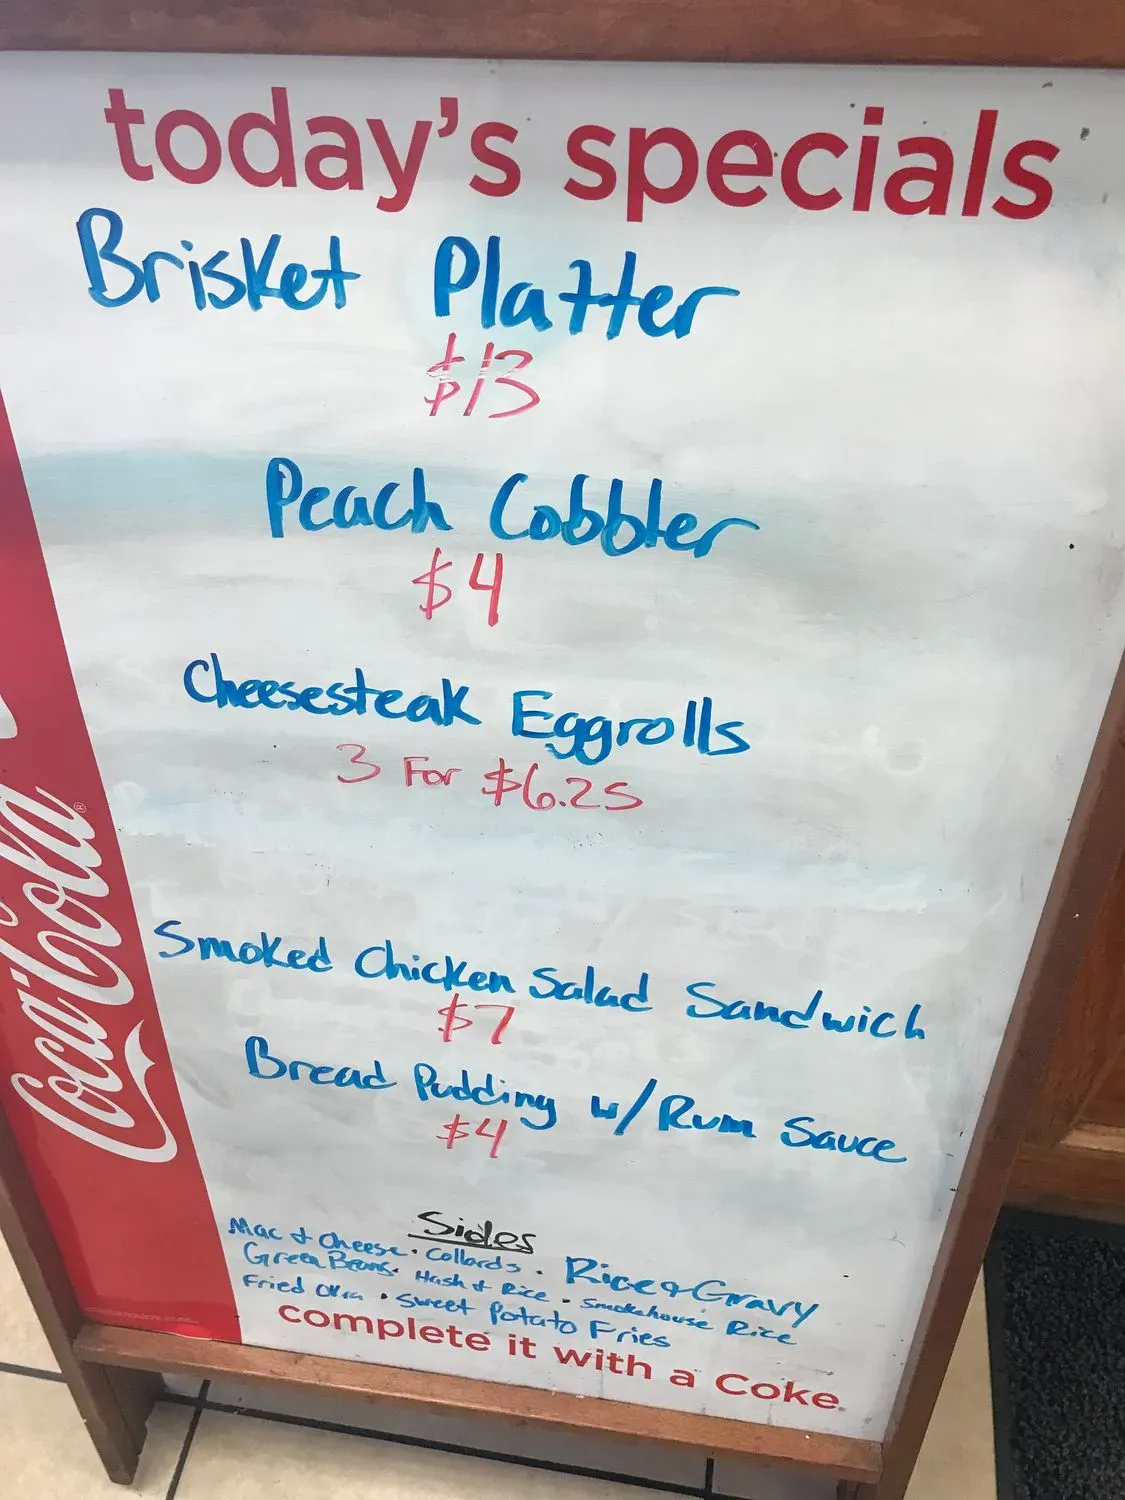 today's specials
Brisket Platter
$13
Peach Cobbler
$4
Cheesesteak Eggrolls
3 For $6.25
Smoked Chicken Salad Sandwich
$7
Bread Pudding w/Rum Sauce
$4
Sides
Mac & Cheese · Collards · Rice & Gravy
Green Beans · Hash & Rice · Smokehouse Rice
Fried Okra · Sweet Potato Fries
complete it with a Coke.
Coca-Cola®